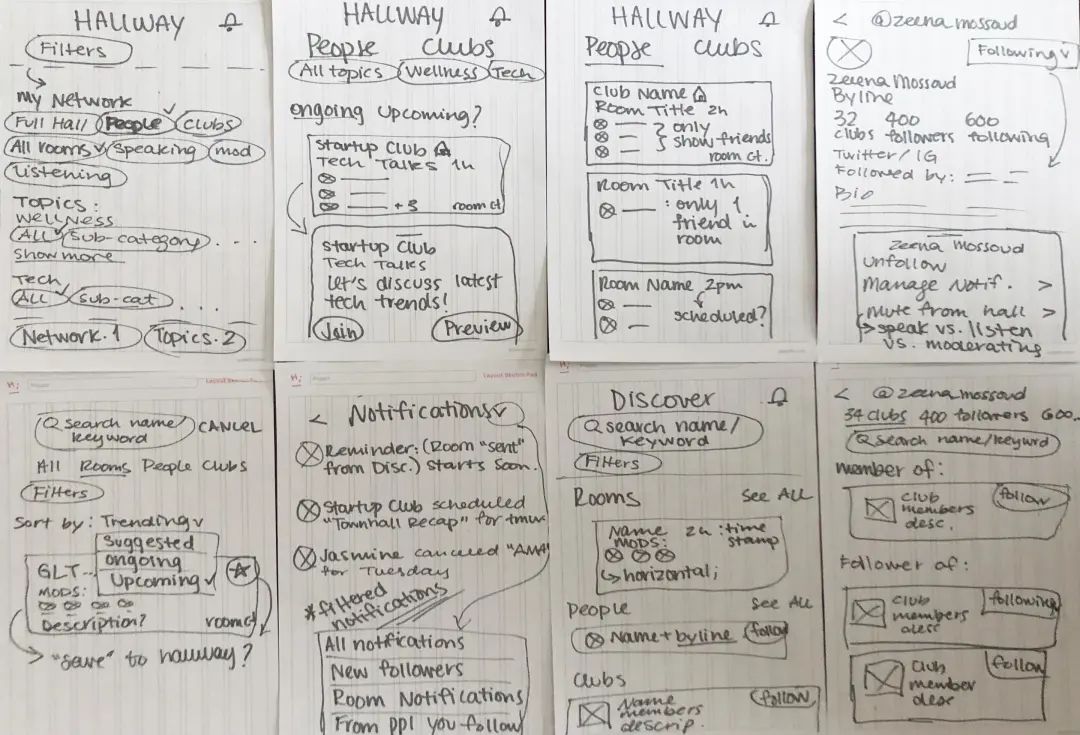 HALLWAY
Filters
My Network
Full Hall People Clubs
All rooms Speaking mod
Listening
Topics:
Wellness
All Sub-category . . .
Show more
Tech
All Sub-cat . . .
Network · 1 Topics · 2
HALLWAY
People Clubs
All topics Wellness Tech
Ongoing Upcoming?
Startup Club
Tech Talks 1h
+3 room ct
Startup Club
Tech Talks
Let's discuss latest
tech trends!
Join Preview
HALLWAY
People Clubs
Club Name
Room Title 2h
only
show friends
room ct.
Room Title 1h
: only 1
friend in
room
Room Name 2pm
scheduled?
< @zeena mossoud
Following
Zeena Mossoud
Byline
32 400 600
clubs followers following
Twitter/IG
Followed by:
Bio
Zeena Mossoud
Unfollow
Manage Notif. >
Mute from hall >
→ speak vs. listen
vs. moderating
Search name/
keyword CANCEL
All Rooms People Clubs
Filters
Sort by: Trending
Suggested
Ongoing
Upcoming
GLT...
MODS:
Description? room ct
"save" to hallway?
< Notifications
Reminder: (Room "sent"
from Disc.) starts soon.
Startup Club scheduled
"Townhall Recap" for tmw
Jasmine canceled "AMA"
for Tuesday
*filtered
notifications
All notfications
New followers
Room Notifications
From ppl you follow
Discover
Search name/
keyword
Filters
Rooms See All
Name 2h : time
stamp
MODS:
horizontal;
People See All
Name + byline follow
Clubs
Name follow
members
descrip.
< @zeenamossoud
34 clubs 400 followers 600..
Search name/keywrd
Member of:
Club follow
members
desc.
Follower of:
Club following
members
desc
Club follow
member
desc